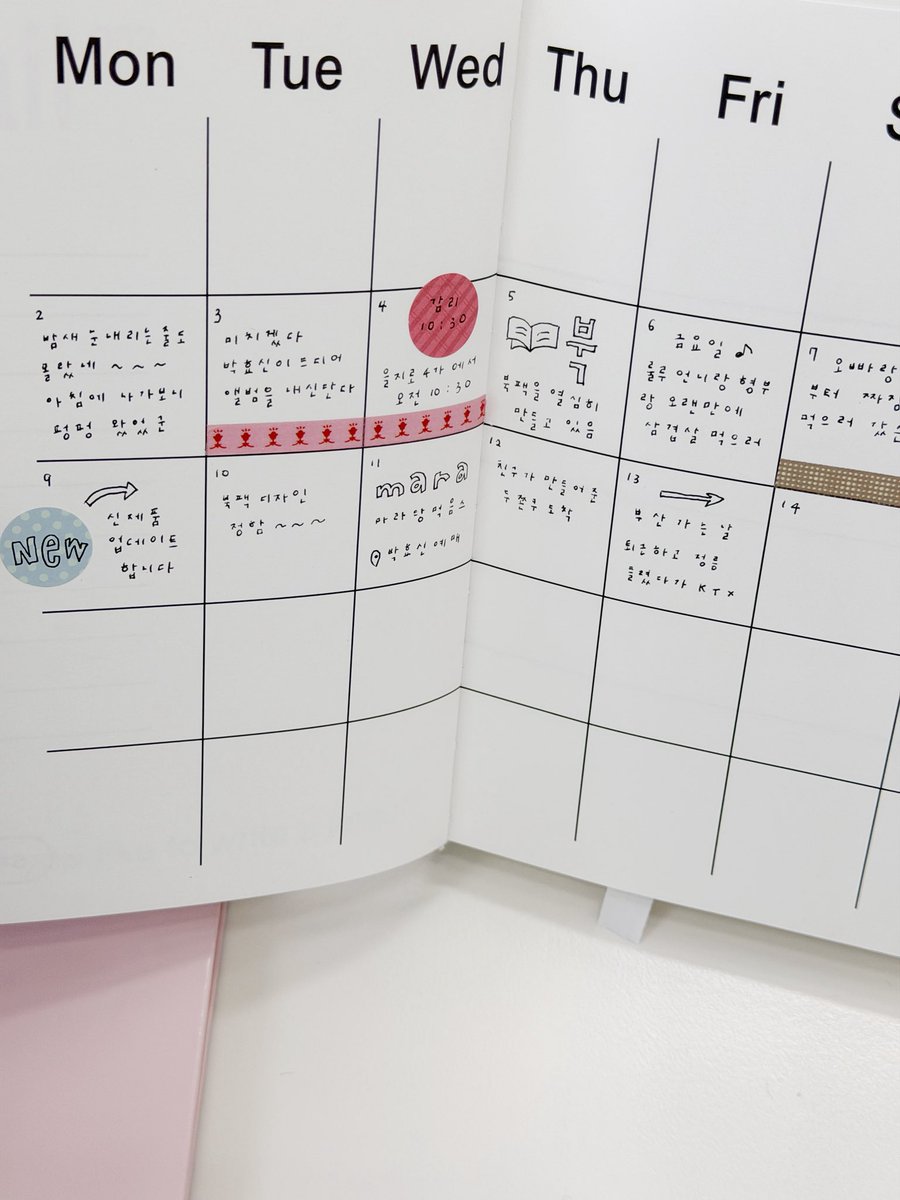 Mon Tue Wed Thu Fri S
2
밤새 눈내리는줄도
몰랐네 ~ ~ ~
아침에 나가보니
펑펑 왔었군
3
미치겠다
박효신이 드디어
앨범을 내신단다
4
감리
10:30
을지로4가에서
오전 10:30
5
북
북팩을 열심히
만들고 있음
6
금요일
룰루 언니랑 형부
랑 오랜만에
삼겹살 먹으러
7
오빠랑
부터
먹으러
9
New
신제품
업데이트
합니다
10
북팩 디자인
정함 ~~~
11
mara
마라탕먹음스
박효신예매
12
친구가 만들어준
두쫀쿠 도착
13
부산가는날
퇴근하고 정름
들렸다가 KTX
14